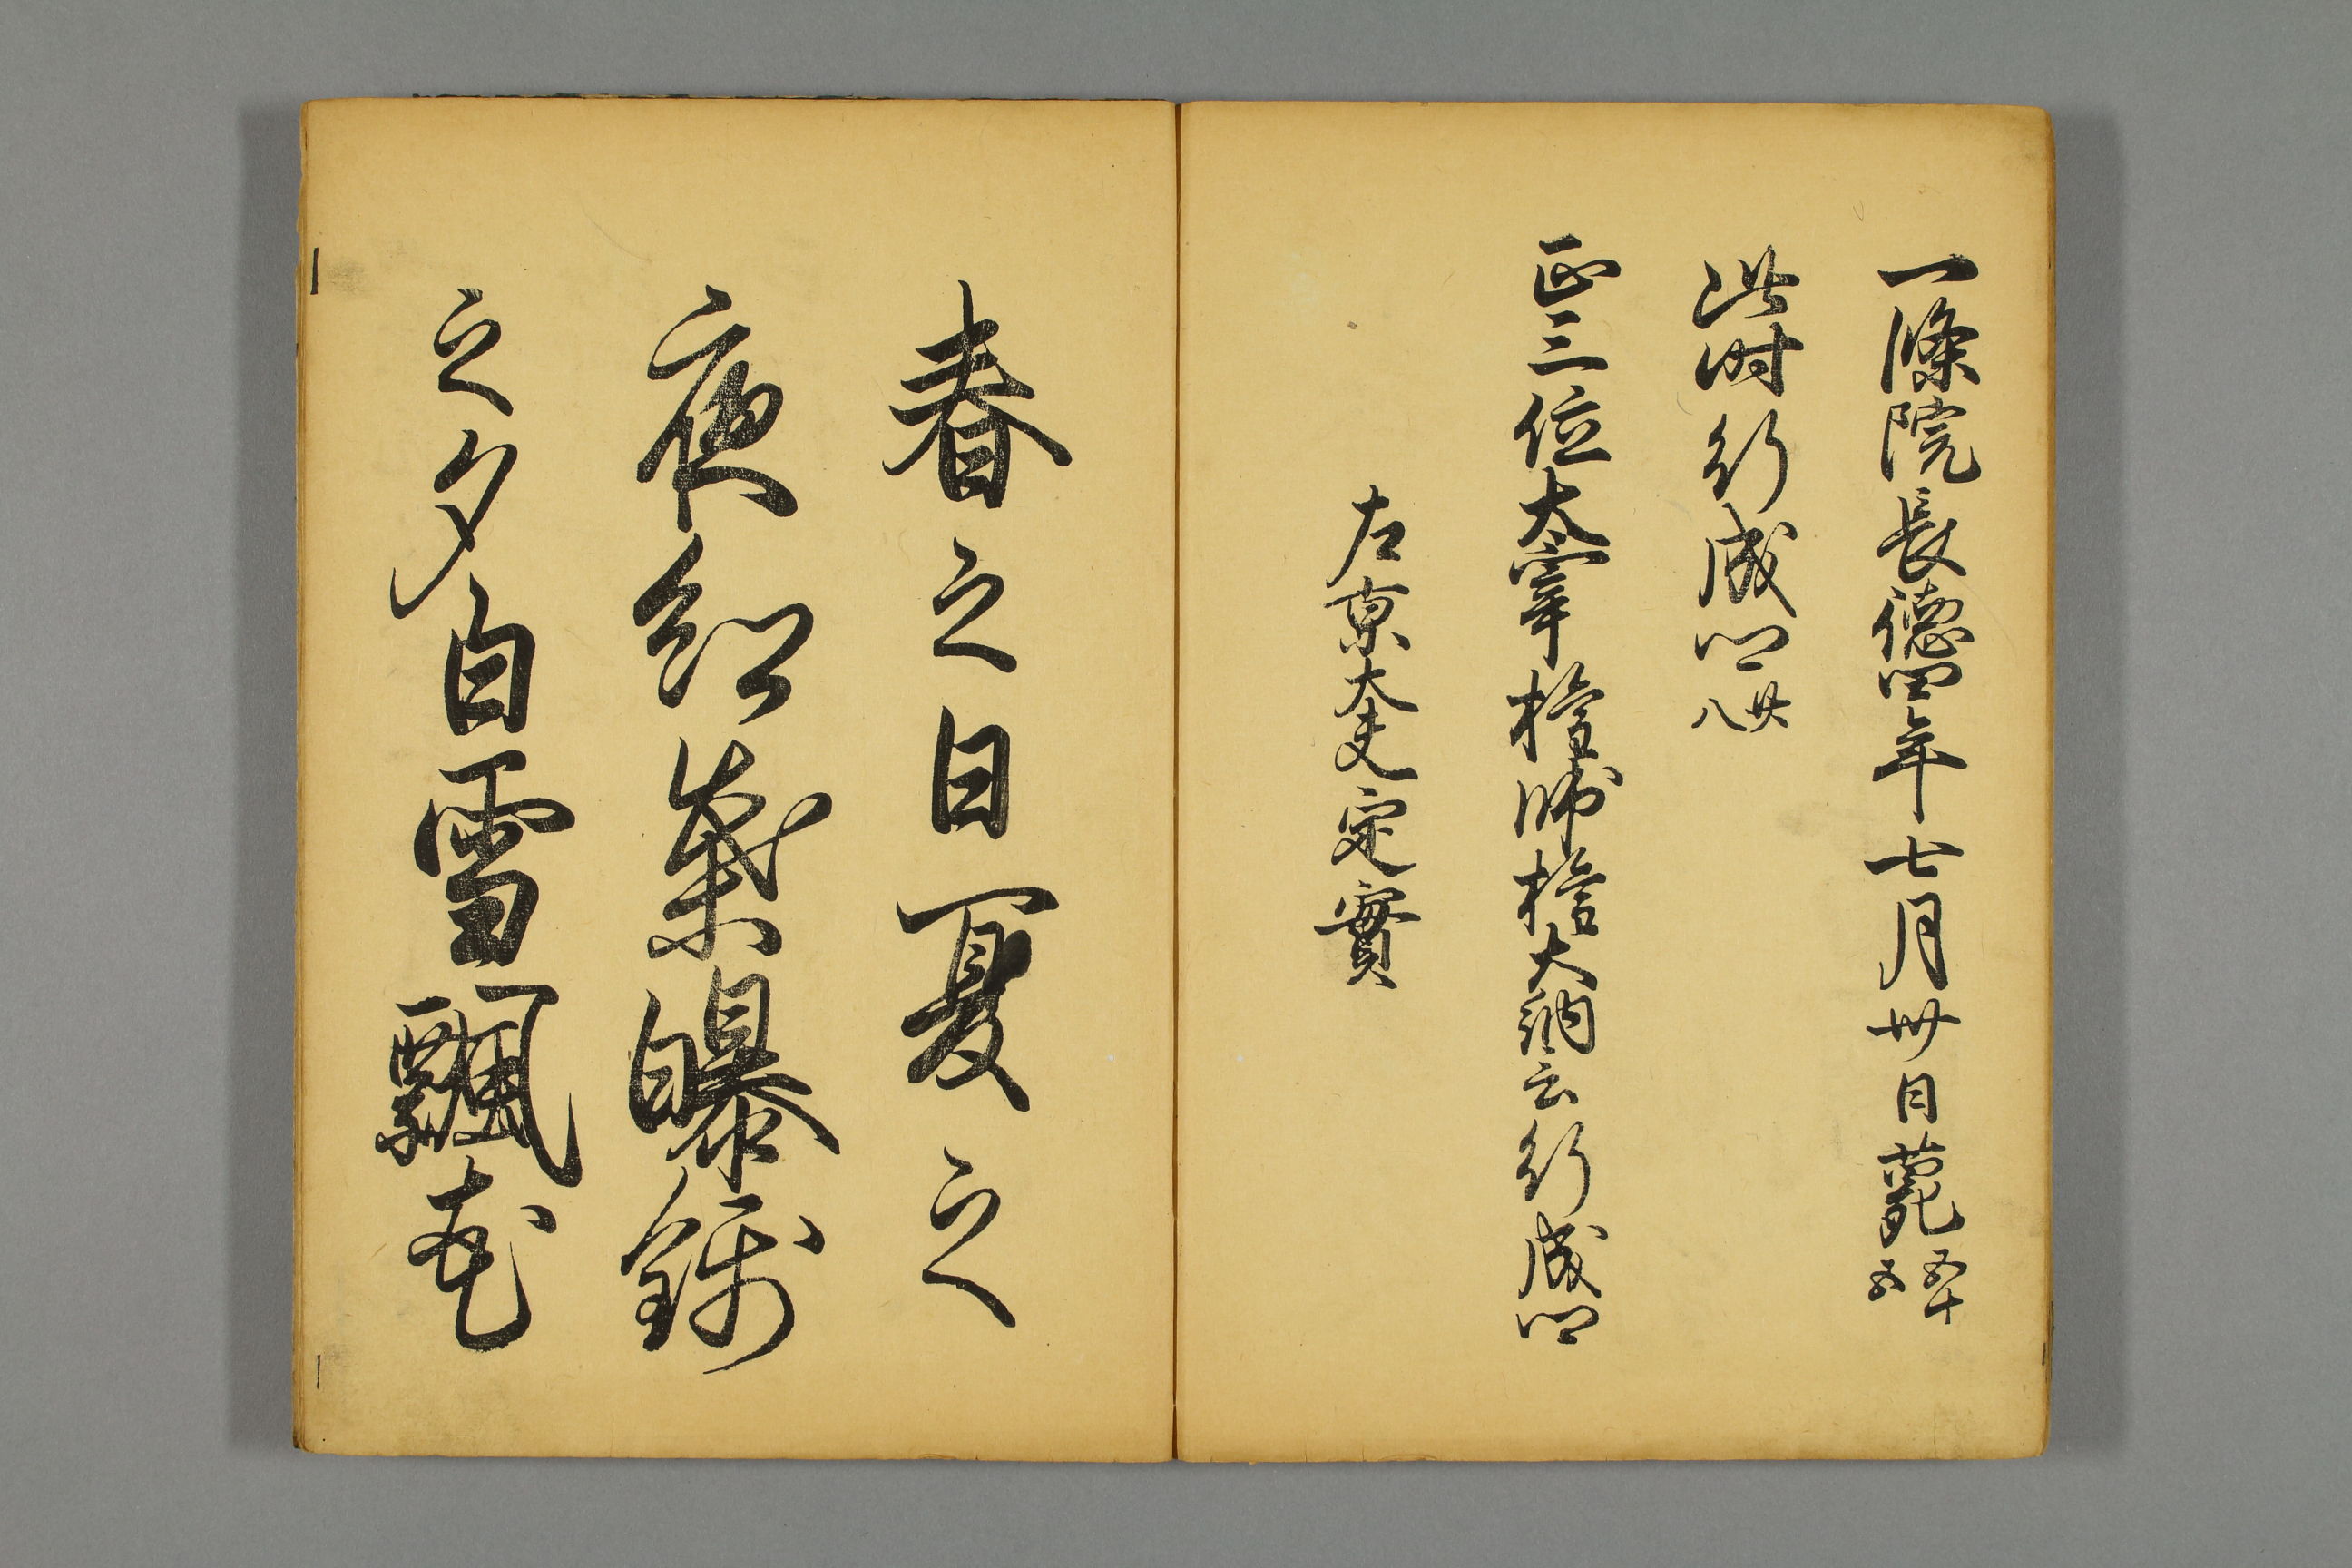 一條院長德四年七月卅日薨五十五
此時行成卿廿八
正三位大宰權帥權大納言行成卿
左京大夫定實
春之日夏之
夜紅葉曝錦
之夕白雪飄花